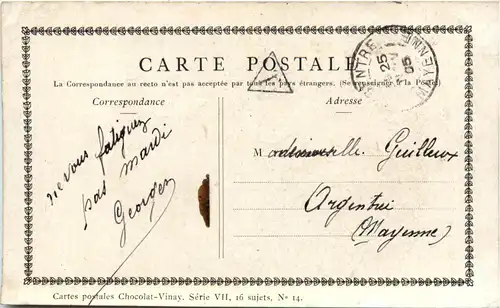 CARTE POSTALE
La Correspondance au recto n'est pas acceptée par tous les pays étrangers. (Se renseigner à la Poste)
Correspondance
ne vous fatiguez
pas mardi
Georges
Adresse
Mademoiselle Guilleux
Argentré
(Mayenne)
25
05
MAYENNE
Cartes postales Chocolat-Vinay. Série VII, 16 sujets, Nº 14.